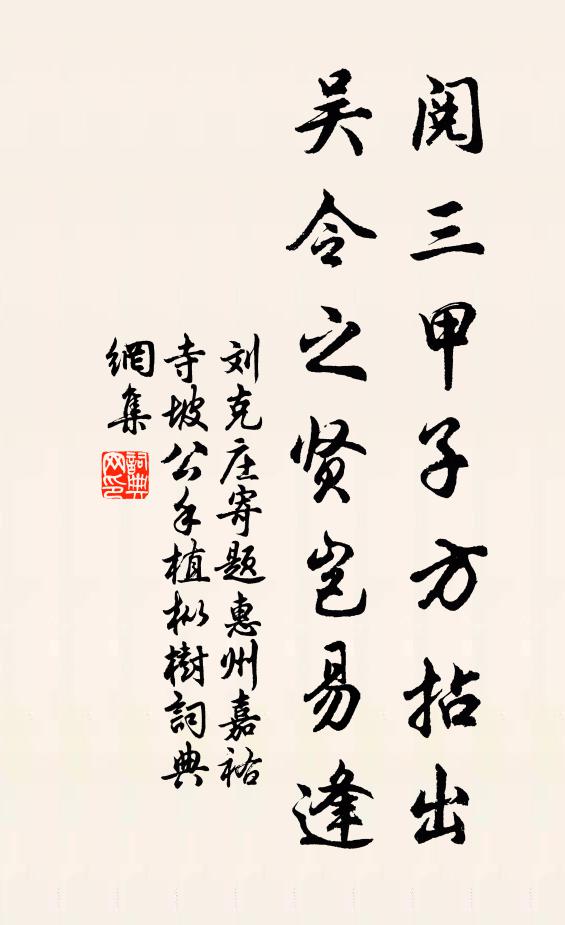 阅三甲子方拈出
吴令之贤岂易逢
刘克庄寄题惠州嘉祐
寺坡公手植枞樹詞典
網集
詞典
网印